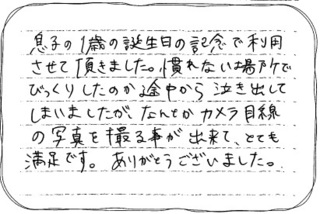 息子の1歳の誕生日の記念で利用
させて頂きました。慣れない場所で
びっくりしたのか途中から泣き出して
しまいましたが、なんとかカメラ目線
の写真を撮る事が出来て、とても
満足です。ありがとうございました。